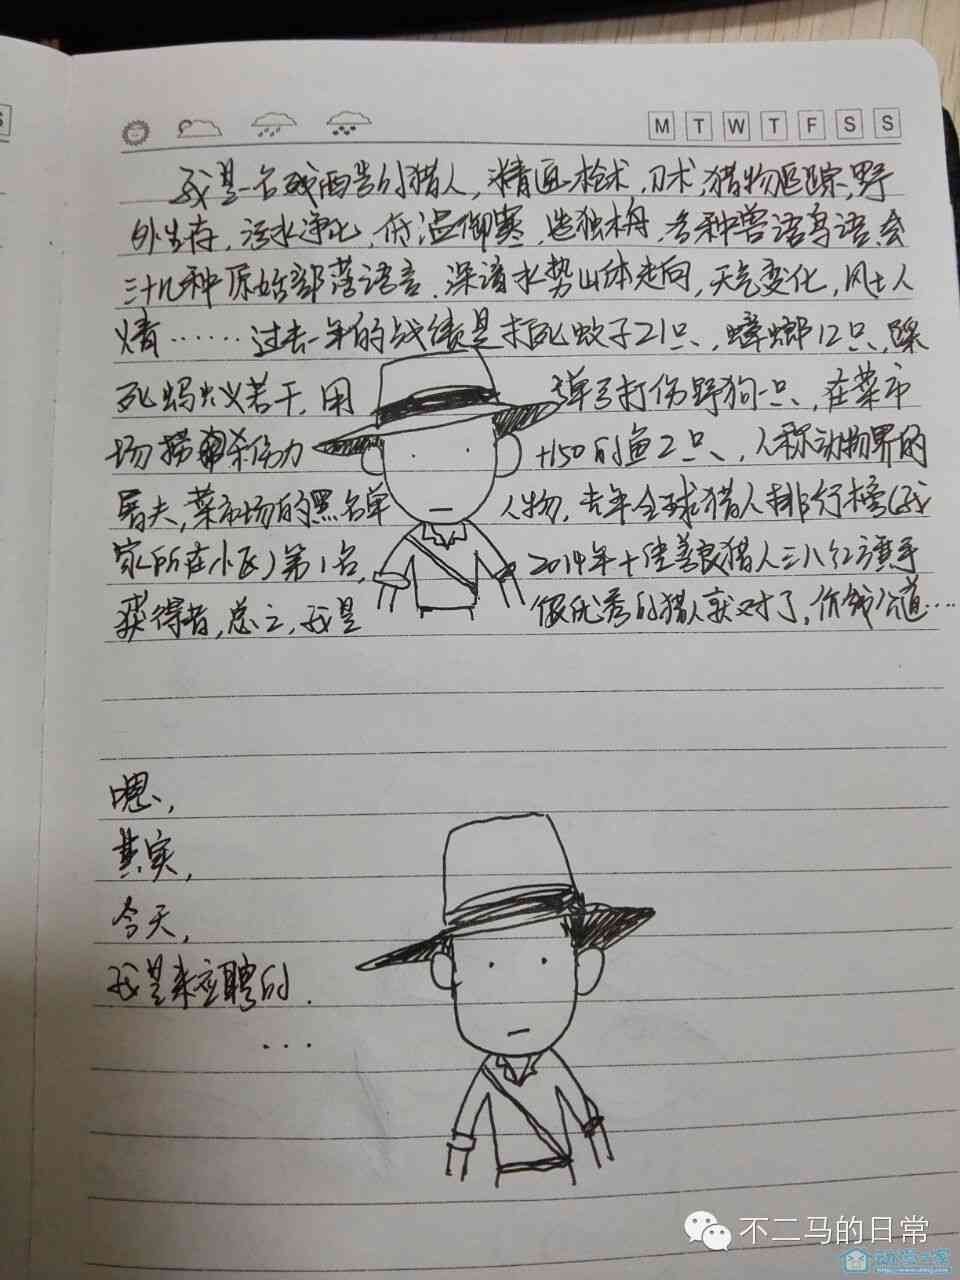 S
M T W T F S S
我是一名残酷的猎人，精通枪术，刀术，猎物追踪，野
外生存，污水净化，低温御寒，造独木舟，各种兽语鸟语，会
三十几种原始部落语言．深谙水势山体走向，天气变化，风土人
情……过去一年的战绩是打死蚊子21只，蟑螂12只，踩
死蚂蚁若干，用弹弓打伤野狗一只，在菜市
场杀伤力+150的鱼2只，人称动物界的
屠夫，菜市场的黑名单人物，去年全球猎人排行榜(我
家所在小区)第1名，2014年十佳善良猎人三八红旗手
获得者，总之，我是很优秀的猎人就对了，价钱公道…
嗯，
其实，
今天，
我是来应聘的．
...
不二马的日常